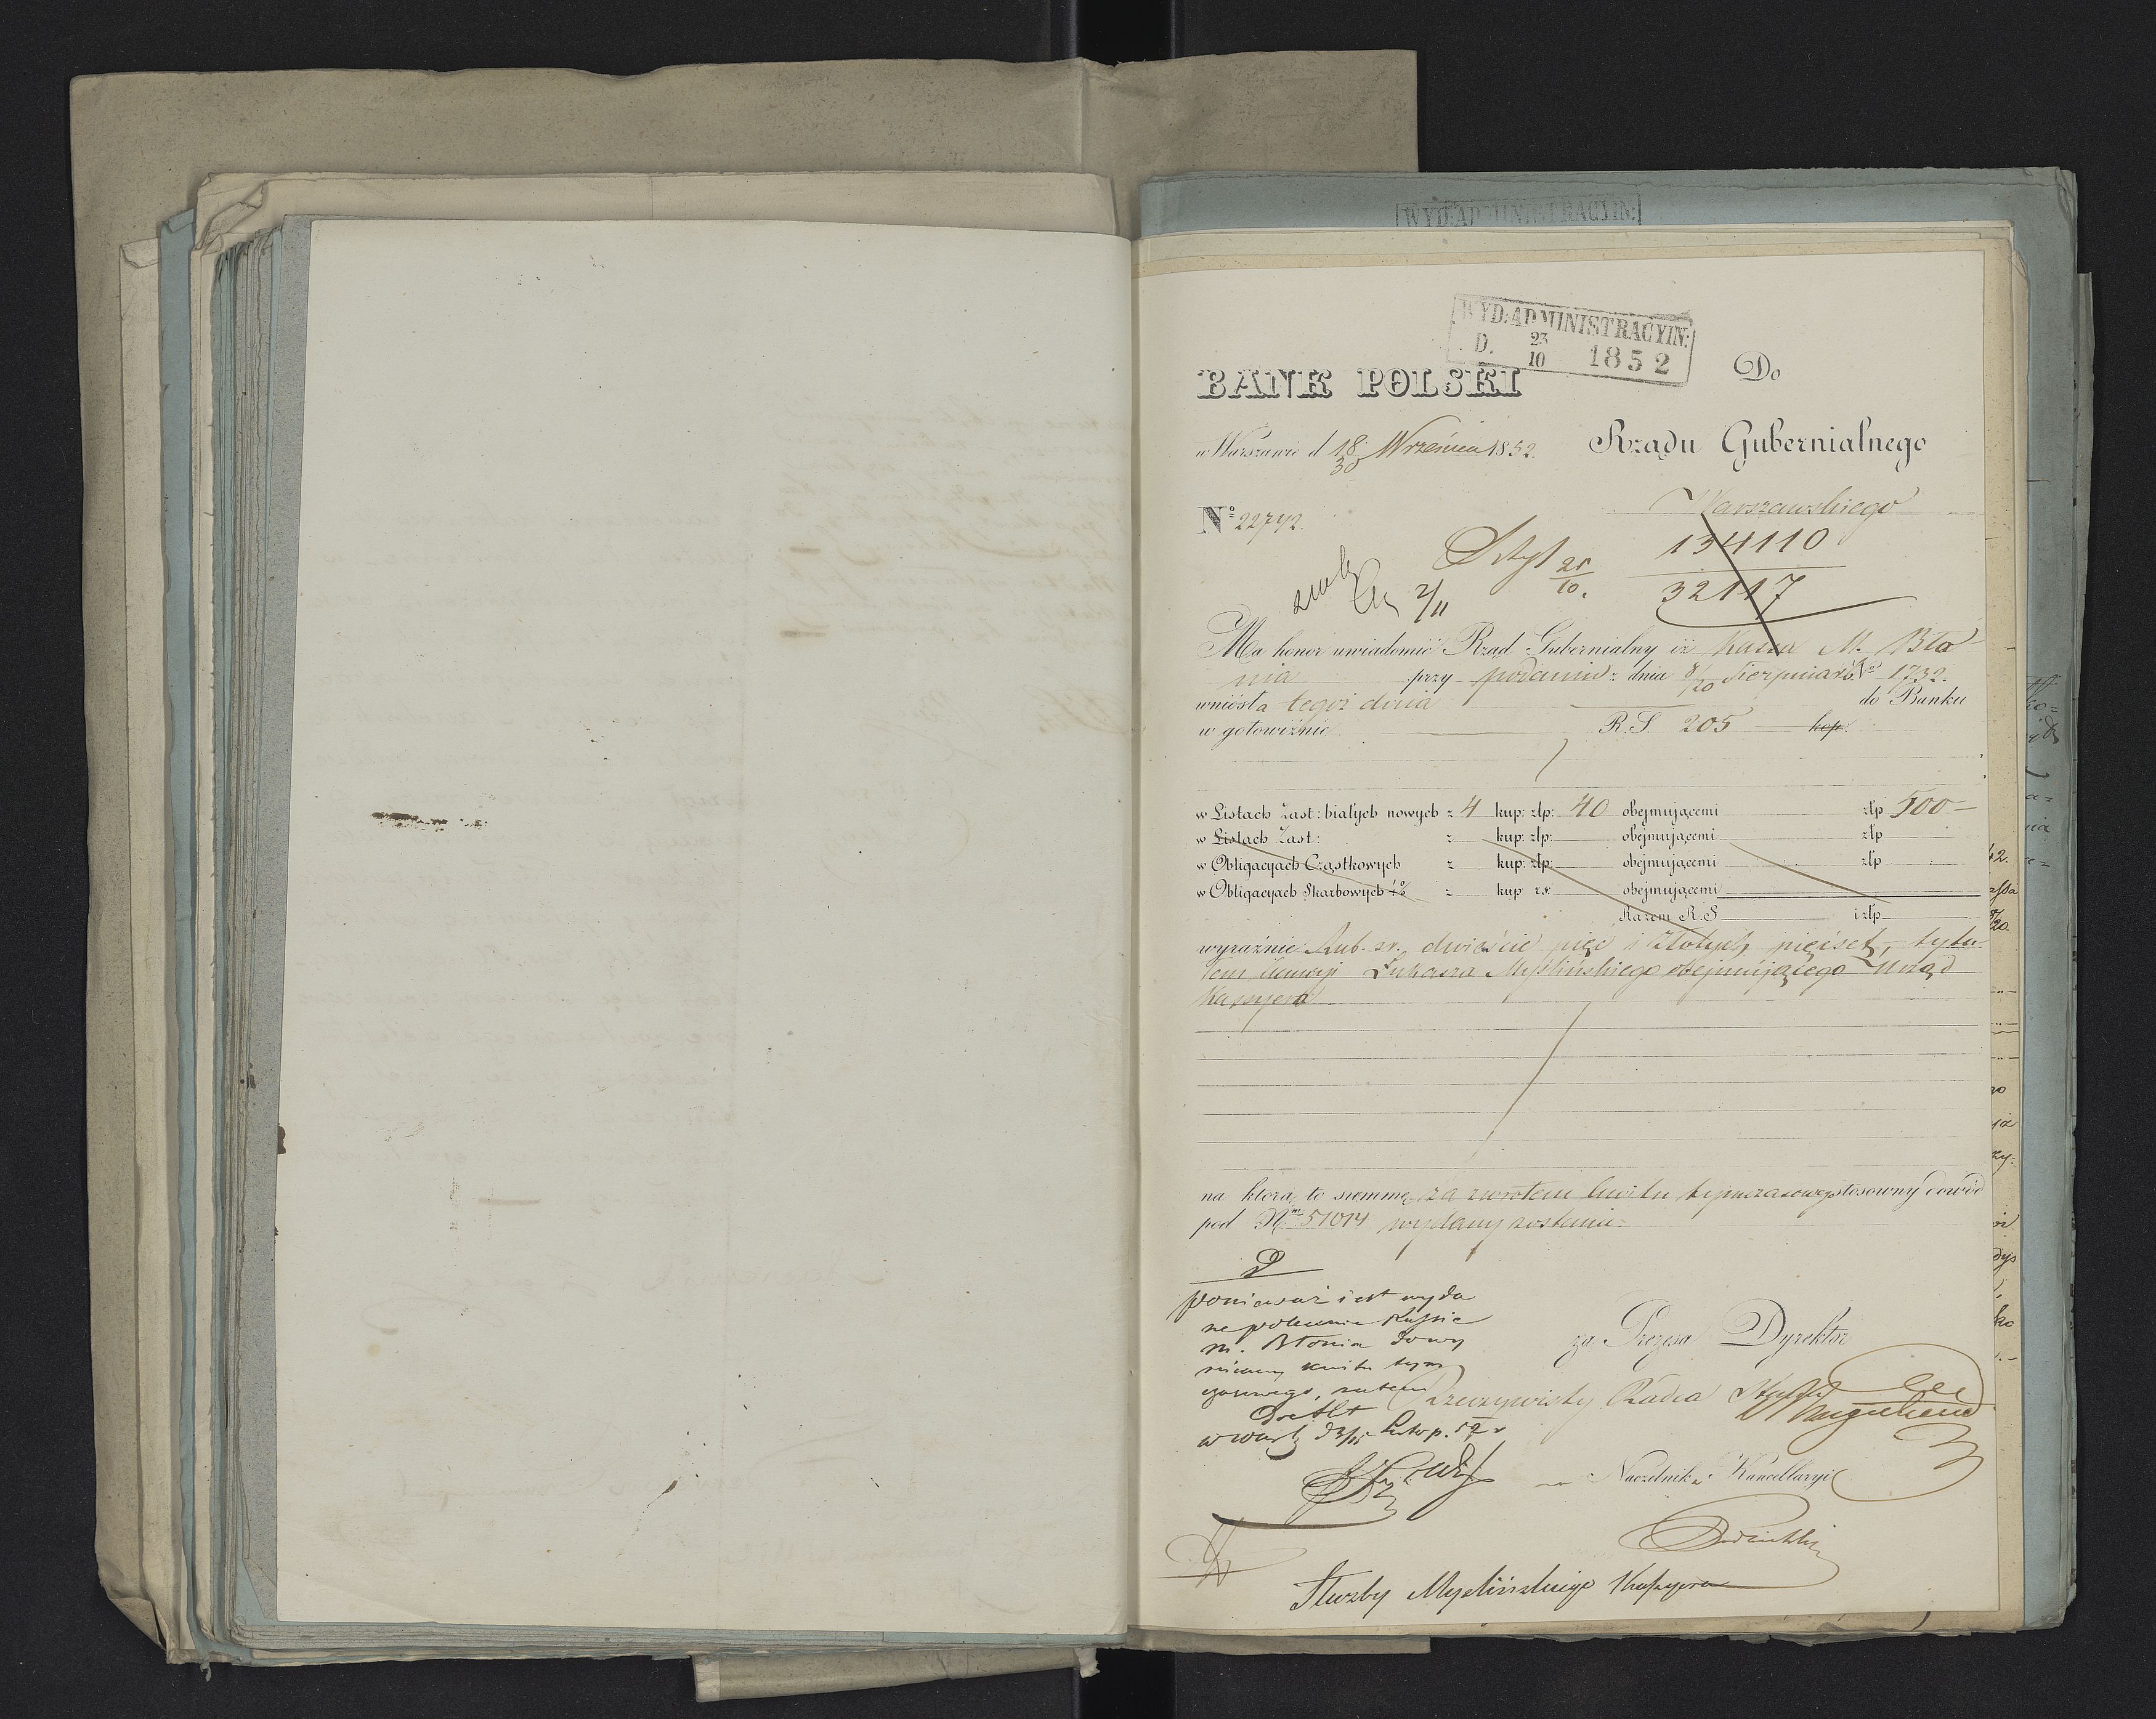 WYD: ADMINISTRACYIN:
WYD: ADMINISTRACYIN:
D. 23/10 1852
BANK POLSKI
Do
w Warszawie d 18/30 Września 1852.
Rządu Gubernialnego
Warszawskiego
Nº 22742.
134110
32117
25/10.
2/11
Ma honor uwiadomić Rząd Gubernialny iż Kassa M. Bło
nia przy podaniu z dnia 8/20 Sierpnia r.b. Nº 1732.
wniosła tegoż dnia do Banku
w gotowiźnie R.S. 205 kop:
w Listach Zast: białych nowych z 4 kup: złp: 40 obejmującemi złp 500 —
w Listach Zast: z kup: złp: obejmującemi złp
w Obligacyach Cząstkowych z kup: złp: obejmującemi złp
w Obligacyach Skarbowych 4% z kup rs. obejmującemi
Razem R.S. i złp
wyraźnie Rub. sr. dwieście pięć i Złotych pięćset, tytu-
łem kaucyi Łukasza Myślińskiego obejmującego Urząd
Kassyera
na którą to summę za zwrotem kwitu tymczasowego stosowny dowód
pod Nrm 51014 wydany zostanie.
ponieważ iest wyda
ne polecenie Kassie
m. Błonia
kwitu tym
czasowego, zatem
ad Acta
w Warsz d 3/15 Listop. 52 r
za Prezesa Dyrektor
Rzeczywisty Radca
Naczelnik Kancellaryi
Służby Myślińskiego Kassyera